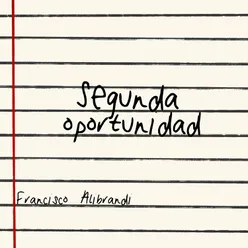 segunda
oportunidad
Francisco Alibrandi